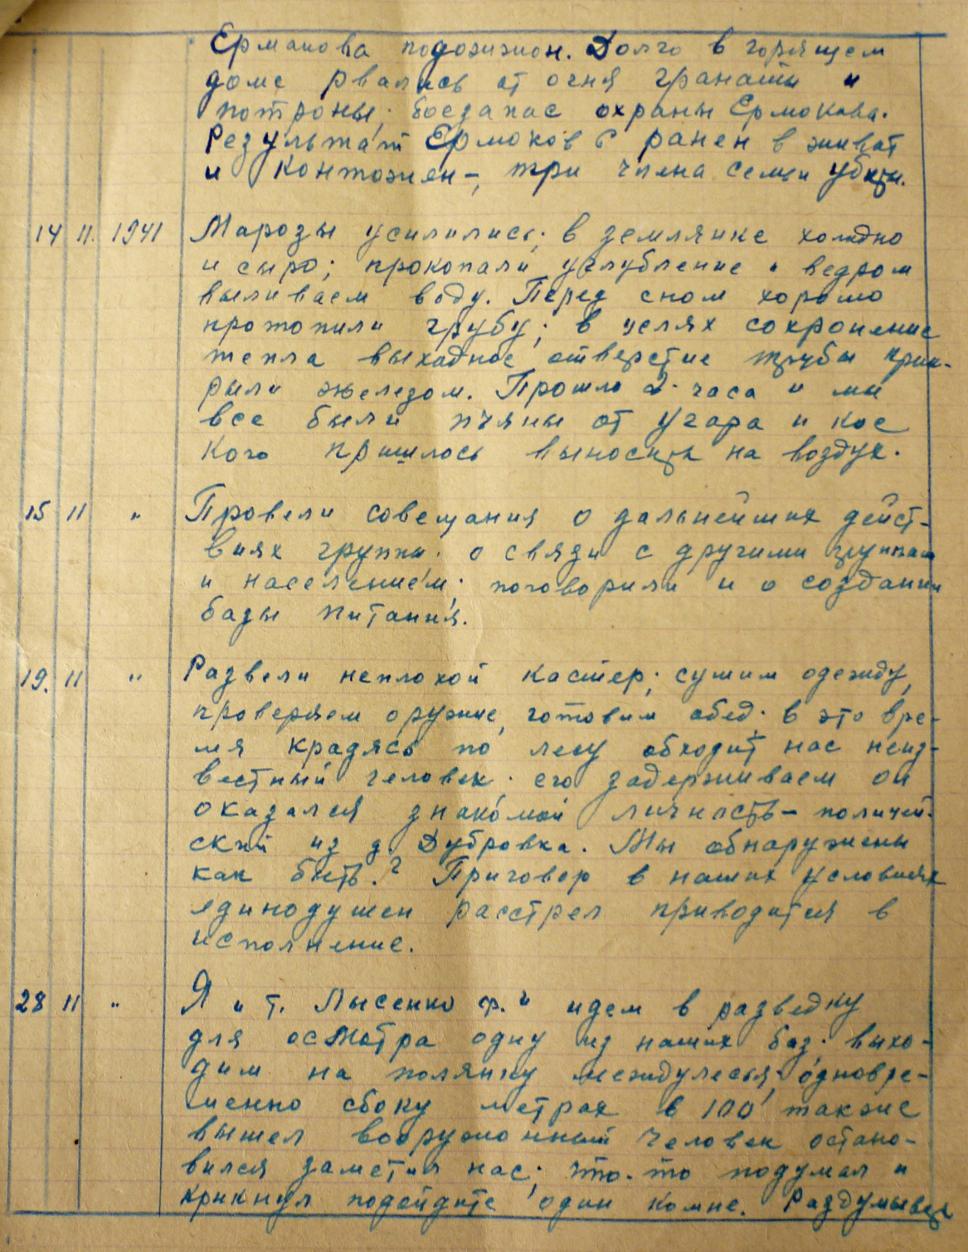 Ермакова подожжон. Долго в горящем
доме рвались от огня гранаты и
потроны; боезапас охраны Ермокова.
Результат Ермоков б ранен в живат
и контожен-, три члена семьи убиты.
14 11. 1941 Марозы усилились; в землянке холодно
и сыро; прокопали углубление и ведром
выливаем воду. Перед сном хорошо
протопили грубу; в целях сохронение
тепла выхадное отверстие трубы прик-
рыли железом. Прошло 2 часа и мы
все были пчяны от угара и кое
кого пришлось выносить на воздух.
15 11 " Провели совещания о дальнейших дейст-
виях группы. о связи с другими группами
и населением; поговорили и о создании
базы питания.
19. 11 " Развели неплохой кастер; сушим одежду,
проверяем оружие, готовим обед. в это вре-
мя крадясь по лесу обходит нас неиз-
вестный человек. его задерживаем он
оказался знакомой личность- полицей-
ский из д. Дубровка. Мы обнаружены
как быть? Приговор в наших условиях
единодушен расстрел приводится в
исполнение.
28 11 " Я и т. Лысенко ф." идем в разведку
для осмотра одну из наших баз; выхо-
дим на полянку междулесья одновре-
менно сбоку метрах в 100 также
вышел вооружонный человек остано-
вился заметил нас; что-то подумал и
крикнул подойдите один комне. Раздумывать